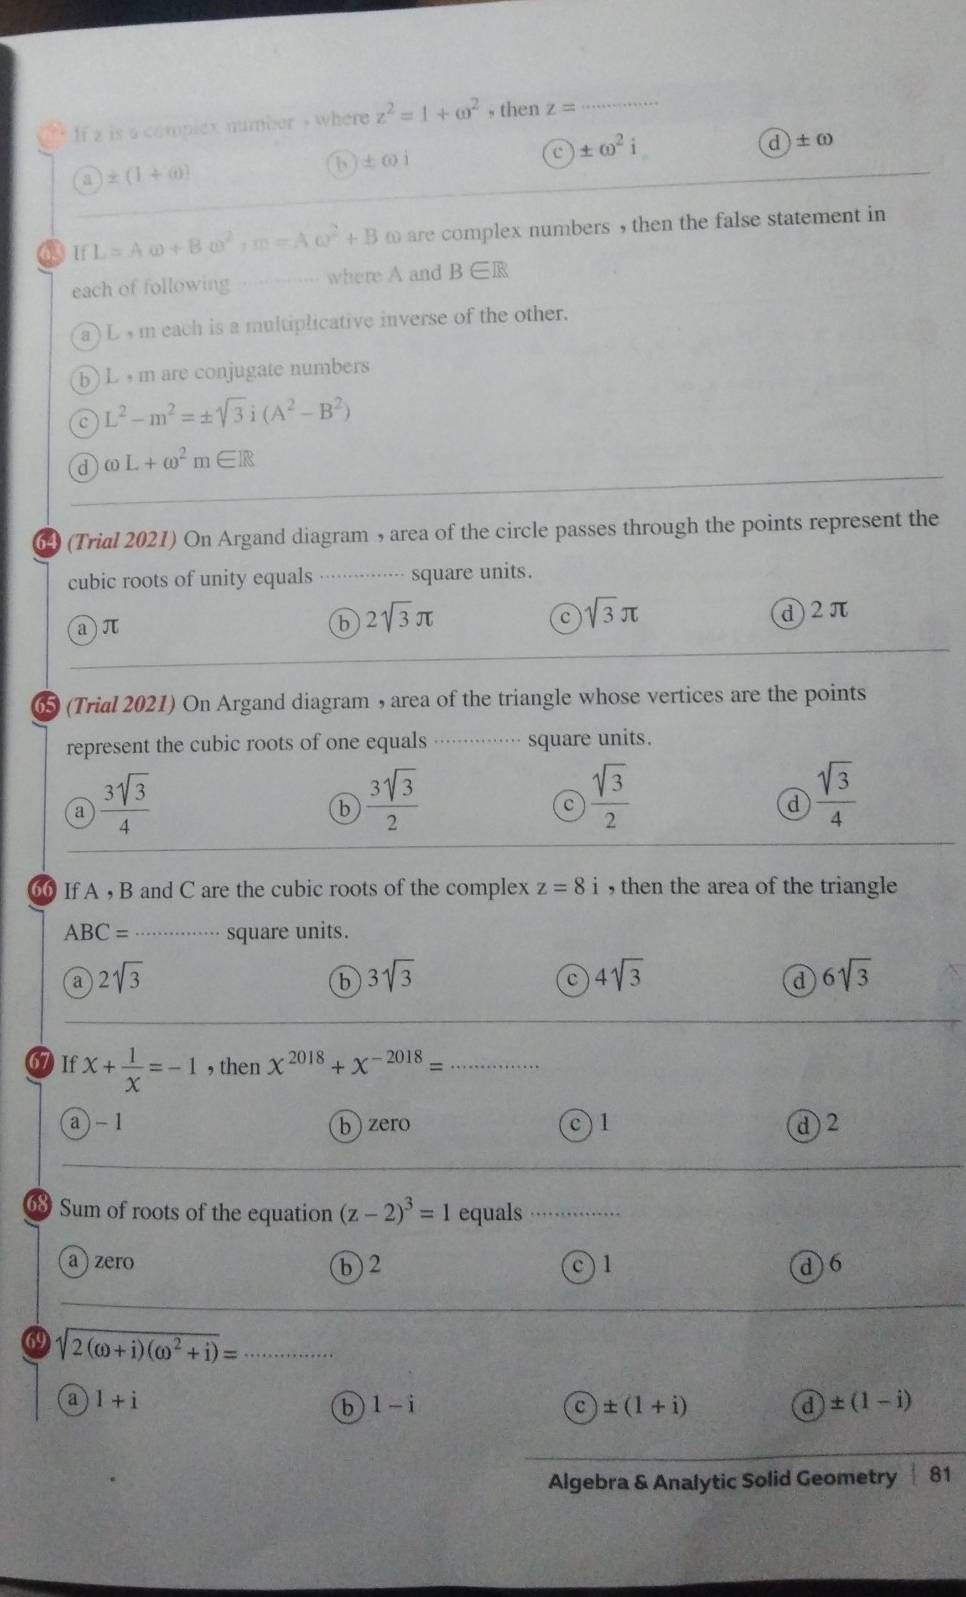 If z is a complex number , where z² = 1 + ω² , then z = ...............
a ± (1 + ω) b ± ω i c ± ω² i d ± ω
63 If L = A ω + B ω² , m = A ω² + B ω are complex numbers , then the false statement in
each of following ............... where A and B ∈ ℝ
a L , m each is a multiplicative inverse of the other.
b L , m are conjugate numbers
c L² − m² = ± √3 i (A² − B²)
d ω L + ω² m ∈ ℝ
64 (Trial 2021) On Argand diagram , area of the circle passes through the points represent the
cubic roots of unity equals ............... square units.
a π b 2√3 π c √3 π d 2 π
65 (Trial 2021) On Argand diagram , area of the triangle whose vertices are the points
represent the cubic roots of one equals ............... square units.
a 3√3/4 b 3√3/2 c √3/2 d √3/4
66 If A , B and C are the cubic roots of the complex z = 8 i , then the area of the triangle
ABC = ............... square units.
a 2√3 b 3√3 c 4√3 d 6√3
67 If x + 1/x = − 1 , then x²⁰¹⁸ + x⁻²⁰¹⁸ = ...............
a − 1 b zero c 1 d 2
68 Sum of roots of the equation (z − 2)³ = 1 equals ...............
a zero b 2 c 1 d 6
69 √(2 (ω + i) (ω² + i)) = ...............
a 1 + i b 1 − i c ± (1 + i) d ± (1 − i)
Algebra & Analytic Solid Geometry | 81